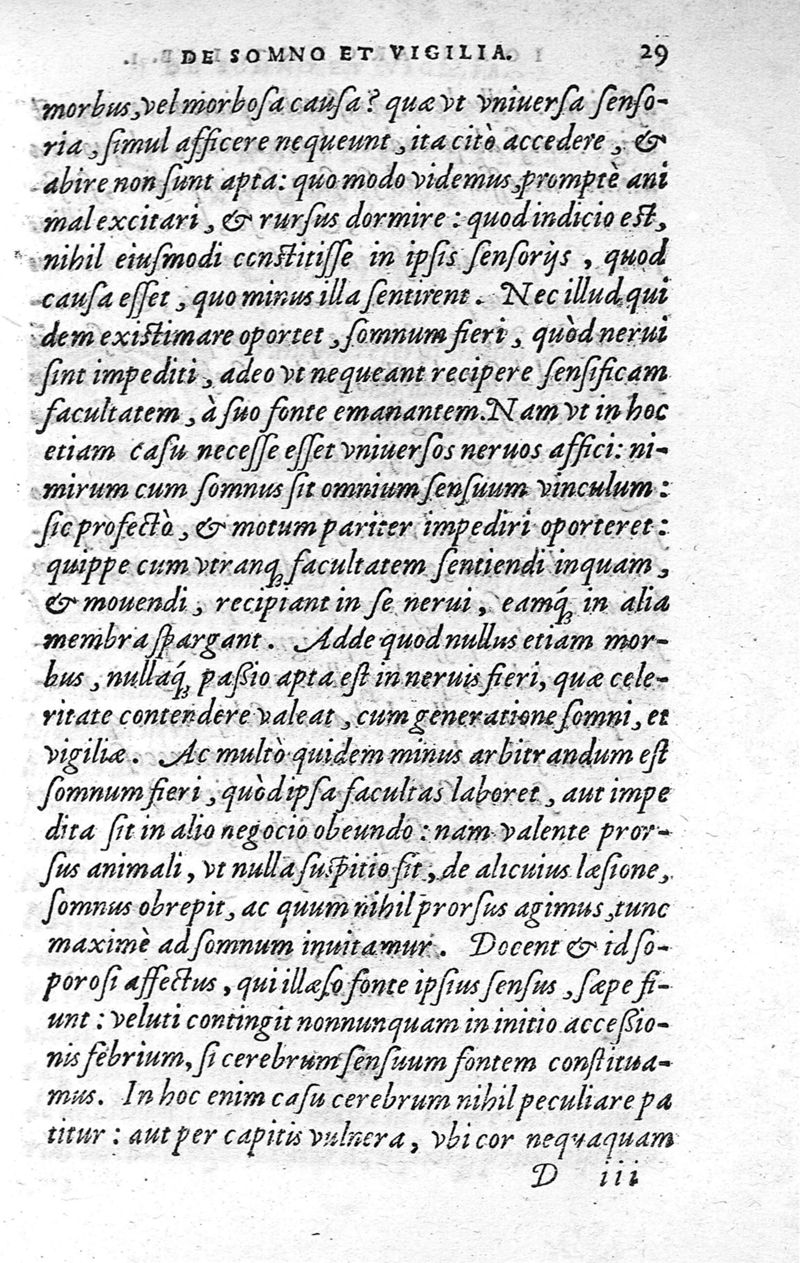 DE SOMNO ET VIGILIA. 29
morbus, vel morbosa causa? quæ vt vniuersa senso-
ria, simul afficere nequeunt, ita citò accedere, &
abire non sunt apta: quo modo videmus, promptè ani
mal excitari, & rursus dormire: quod indicio est,
nihil eiusmodi ccnstitisse in ipsis sensorijs, quod
causa esset, quo minus illa sentirent. Nec illud qui
dem existimare oportet, somnum fieri, quòd nerui
sint impediti, adeo vt nequeant recipere sensificam
facultatem, à suo fonte emanantem. Nam vt in hoc
etiam casu necesse esset vniuersos neruos affici: ni-
mirum cum somnus sit omnium sensuum vinculum:
sic profectò, & motum pariter impediri oporteret:
quippe cum vtranq; facultatem sentiendi inquam,
& mouendi, recipiant in se nerui, eamq́; in alia
membra spargant. Adde quod nullus etiam mor-
bus, nullaq́; passio apta est in neruis fieri, quæ cele-
ritate contendere valeat, cum generatione somni, et
vigiliæ. Ac multò quidem minus arbitrandum est
somnum fieri, quòd ipsa facultas laboret, aut impe
dita sit in alio negocio obeundo: nam valente pror-
sus animali, vt nulla suspitio sit, de alicuius læsione,
somnus obrepit, ac quum nihil prorsus agimus, tunc
maximè ad somnum inuitamur. Docent & id so-
porosi affectus, qui illæso fonte ipsius sensus, sæpe fi-
unt: veluti contingit nonnunquam in initio accessio-
nis febrium, si cerebrum sensuum fontem constitua-
mus. In hoc enim casu cerebrum nihil peculiare pa
titur: aut per capitis vulnera, vbi cor nequaquam
D iii